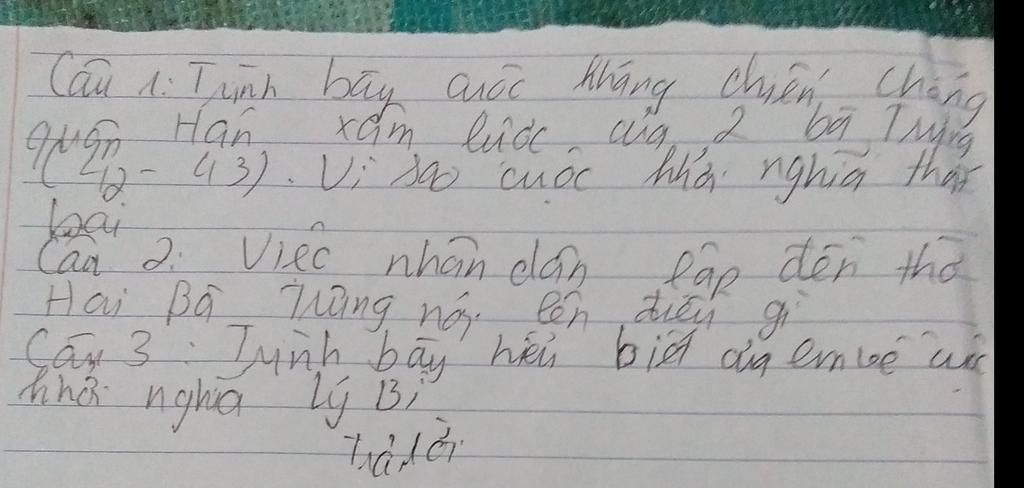 Câu 1: Trình bày cuộc kháng chiến chống
quân Hán xâm lược của 2 bà Trưng
(42 - 43). Vì sao cuộc khởi nghĩa thất
bại
Câu 2: Việc nhân dân lập đền thờ
Hai Bà Trưng nói lên điều gì
Câu 3: Trình bày hiểu biết của em về cuộc
khởi nghĩa Lý Bí
Trả lời